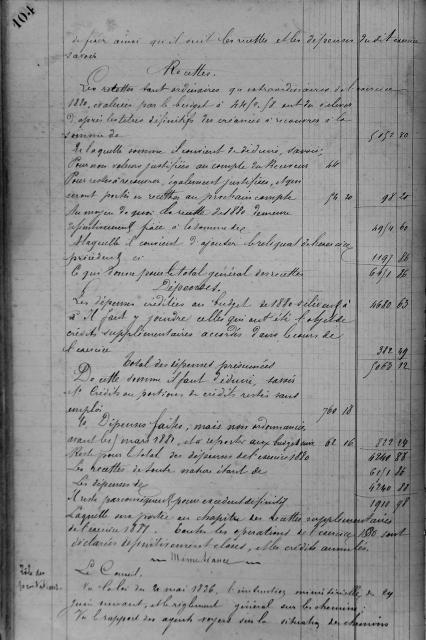 104
de fixer ainsi qu'il suit les recettes et les dépenses du dit exercice
savoir
Recettes.
Les recettes tant ordinaires qu'extraordinaires de l'exercice
1880, évaluées par le budget à ont dû s'élever
d'après les titres définitifs des créances à recouvrer à la
somme de
De laquelle somme il convient de déduire, savoir;
Pour non valeurs justifiées au compte du Receveur 44
Pour restes à recouvrer, également justifiés, et qui
seront portés en recettes au prochain compte 54 20 98 20
Au moyen de quoi la recette de 1880 demeure
définitivement fixée à la somme de
A laquelle il convient d'ajouter le reliquat de l'exercice
précédent ci 1197 86
Ce qui donne pour le total général des recettes 6151 86
Dépenses.
Les dépenses créditées au budget de 1880 s'élèvent à 4680 63
à il faut y joindre celles qui ont été l'objet de
crédits supplémentaires accordés dans le cours de
l'exercice 382 49
Total des dépenses présumées 5063 12
De cette somme il faut déduire, savoir
1º Crédits ou portions de crédits restés sans
emploi 760 18
2º Dépenses faites, mais non ordonnancées
avant le mars 1881, et à reporter aux budgets 62 16 822 24
Reste pour le total des dépenses de l'exercice 1880 4240 88
Les recettes de toute nature étant de 6151 86
Les dépenses de 4240 88
Il reste par conséquent pour excédent définitif 1910 98
Laquelle sera portée au chapitre des recettes supplémentaires
de l'exercice 1881. Toutes les opérations de l'exercice 1880 sont
déclarées définitivement closes, et les crédits annulés.
Même séance
Rôle des
prestations
Le Conseil,
Vu la loi du 21 mai 1836, l'instruction ministérielle du 24
juin suivant, et le règlement général sur les chemins;
Vu le rapport des agents voyers sur la situation des chemins